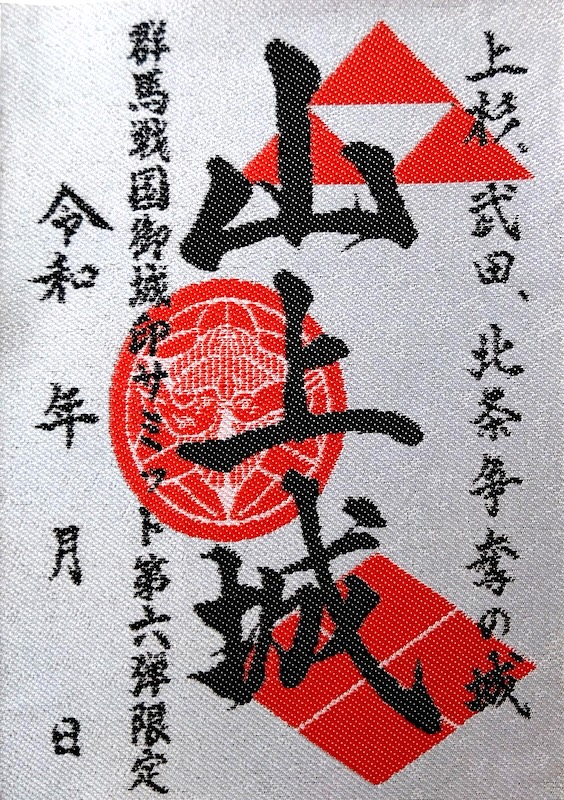 上杉、武田、北条争奪の城
山上城
群馬戦国御城印サミット第六弾限定
令和　年　月　日